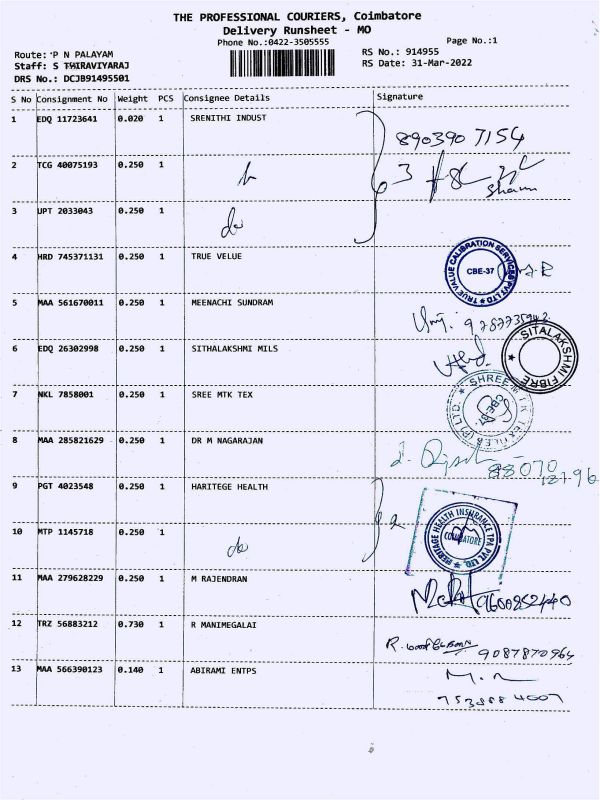 THE PROFESSIONAL COURIERS, Coimbatore
Delivery Runsheet - MO
Phone No.:0422-3505555
Page No.:1
Route: P N PALAYAM
RS No.: 914955
Staff: S THIRAVIYARAJ
RS Date: 31-Mar-2022
DRS No.: DCJB91495501
S No Consignment No Weight PCS Consignee Details Signature
1 EDQ 11723641 0.020 1 SRENITHI INDUST
8903907154
2 TCG 40075193 0.250 1
3
3 UPT 2033043 0.250 1 do
4 HRD 745371131 0.250 1 TRUE VELUE
TRUE VALUE CALIBRATION SERVICES PVT LTD
CBE-37
5 MAA 561670011 0.250 1 MEENACHI SUNDRAM
6 EDQ 26302998 0.250 1 SITHALAKSHMI MILS
SITALAKSHMI FIBRE
7 NKL 7858001 0.250 1 SREE MTK TEX
8 MAA 285821629 0.250 1 DR M NAGARAJAN
88070
9 PGT 4023548 0.250 1 HARITEGE HEALTH
2
HERITAGE HEALTH INSURANCE TPA PVT. LTD.
COIMBATORE
10 MTP 1145718 0.250 1 do
11 MAA 279628229 0.250 1 M RAJENDRAN
9600252440
12 TRZ 56883212 0.730 1 R MANIMEGALAI
9087870964
13 MAA 566390123 0.140 1 ABIRAMI ENTPS
7538884007